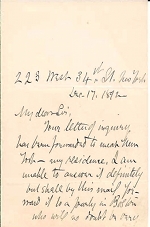 223 West 34th St. New York
Dec. 17. 1892
My dear Sir,
Your letter of inquiry
has been forwarded to me in New
York — my residence. I am
unable to answer it definitely
but shall by this mail for-
ward it to a party in Boston
who will no doubt be very